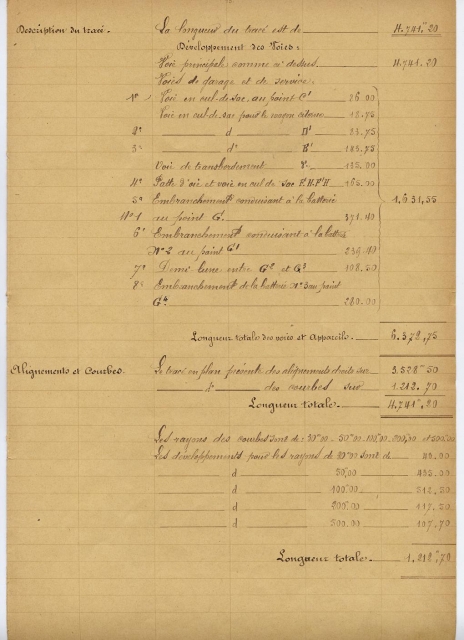 Description du tracé. La longueur du tracé est de 4.741.m 20
Développement des Voies.
Voie principale comme ci dessus. 4.741. 20
Voies de garage et de service.
1º Voie en cul-de-sac, au point C' 26.00
Voie en cul-de-sac pour le wagon citerne
2º d H'
3º d' E'
Voie de transbordement
4º Patte d'oie et voie en cul de sac 165.00
5º Embranchement conduisant à la batterie 1.631,55
Nº 1 au point G'. 371.40
6º Embranchement conduisant à la batterie
Nº 2 au point G' 239.40
7º Demi lune entre G² et G³
8º Embranchement de la batterie Nº 3 au point
G4 280.00
Longueur totale des voies et Appareils. 6.372,75
Alignements et Courbes. Le tracé en plan présente des alignements droits sur 3.528m 50
d' des courbes sur 1.212. 70
Longueur totale. 4.741m, 20
Les rayons des courbes sont de: 30m00 - 50m00 - 100,00 200,00 et 500,00
Les développements pour les rayons de 30m00 sont de
d 50,00 435.00
d 100m00 512,50
d 200,00
d 500,00 107,70
Longueur totale. 1.212m,70